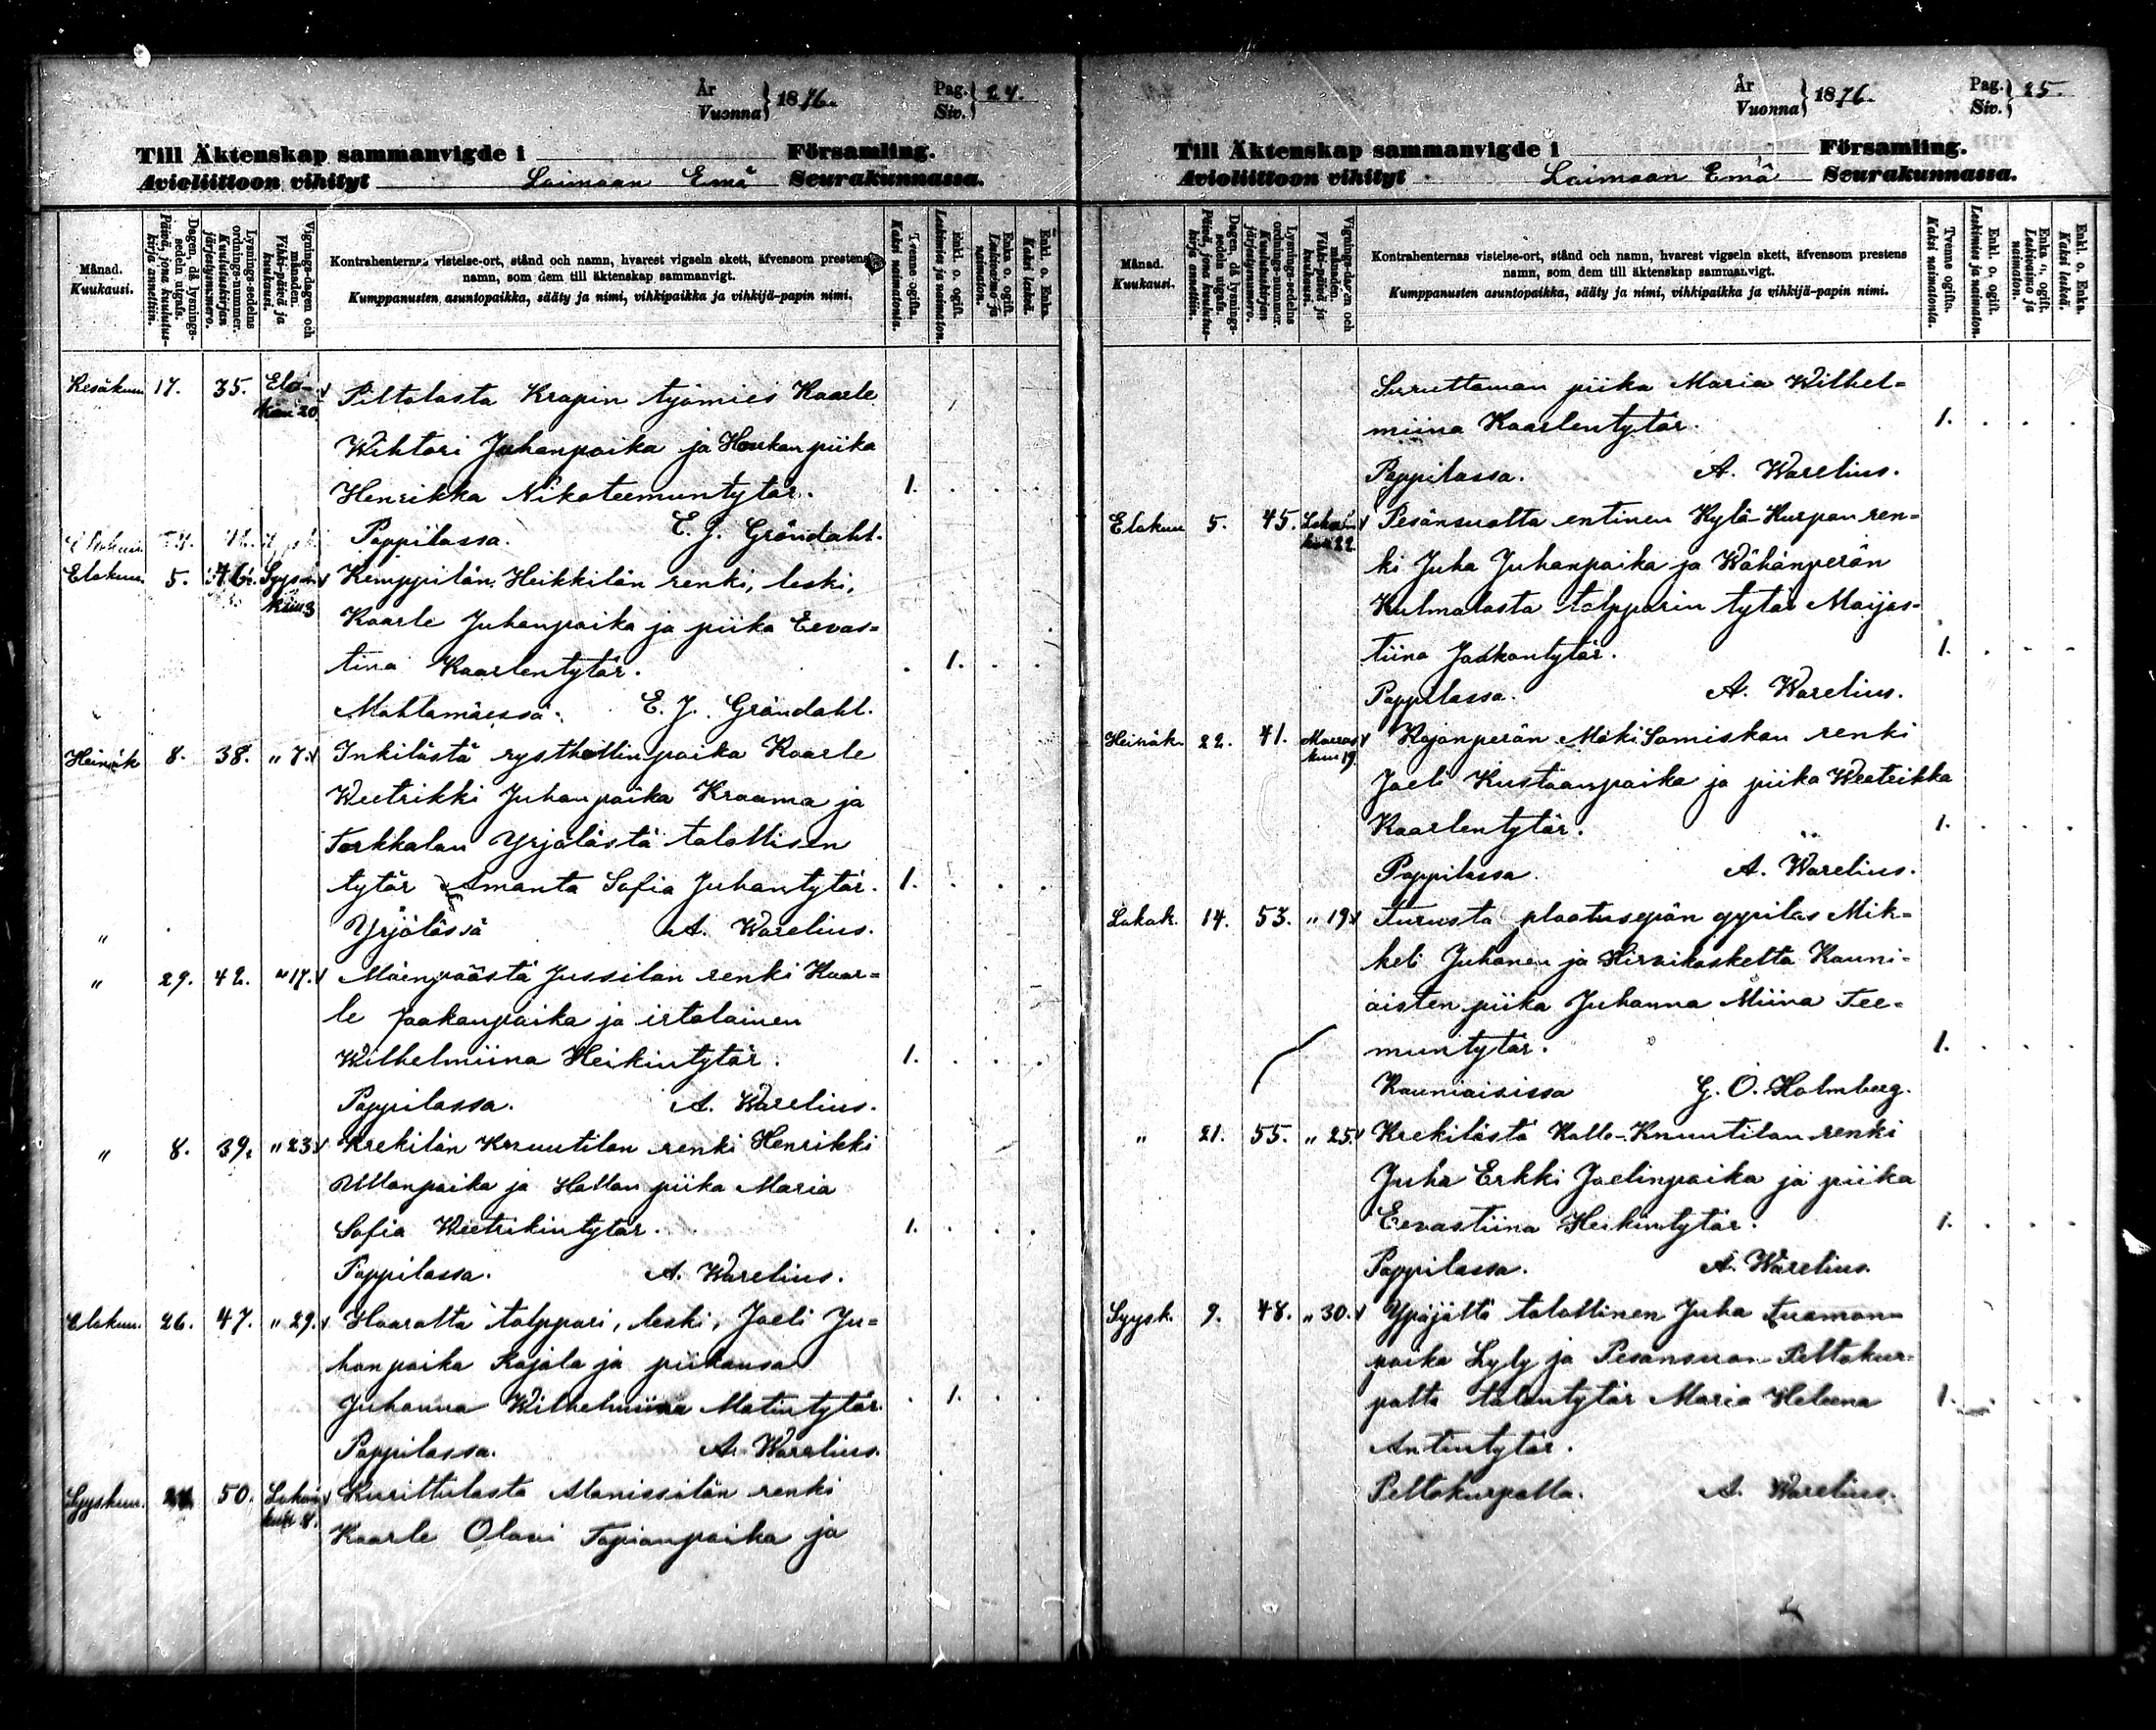 År
Vuonna } 1876. Pag. Siv. } 24.
Till Äktenskap sammanvigde i Församling.
Avioliittoon vihityt Loimaan Emä Seurakunnassa.
Månad. Kuukausi.
Dagen, då lysnings-sedeln utgafs. Päivä, jona kuulutus-kirja annettiin.
Lysnings-sedelns ordnings-nummer. Kuulutuskirjan järjestysnumero.
Vignings-dagen och månaden. Vihki-päivä ja kuukausi.
Kontrahenternas vistelse-ort, stånd och namn, hvarest vigseln skett, äfvensom prestens
namn, som dem till äktenskap sammanvigt.
Kumppanusten asuntopaikka, sääty ja nimi, vihkipaikka ja vihkijä-papin nimi.
Tvenne ogifta. Kaksi naimatonta.
Enkl. o. ogift. Leskimies ja naimaton.
Enka o. ogift. Leskivaimo ja naimaton.
Enkl. o. Enka. Kaksi leskeä.
Kesäkuu 17. 35. Elo-kuu 20 Piltolasta Krapin työmies Kaarle
Wihtori Juhanpoika ja Houkan piika
Henrikka Nikoteemuntytär. 1. . . .
Pappilassa. E. J. Gröndahl.
Elokuu 5. 46. Syys-kuu 3 Kemppilän Heikkilän renki, leski,
Kaarle Juhanpoika ja piika Eevas=
tina Kaarlentytär. . 1. . .
Mahlamäessä. E. J. Gröndahl.
Heinäk. 8. 38. " 7. Inkilästä rysthollin poika Kaarle
Weetrikki Juhanpoika Kraama ja
Torkkalan Yrjölästä talollisen
tytär Amanta Sofia Juhantytär. 1. . . .
" Yrjölässä A. Warelius.
" 29. 42. " 17. Mäenpäästä Jussilan renki Kaar=
le Jaakanpoika ja irtolainen
Wilhelmiina Heikintytär. 1. . . .
Pappilassa. A. Warelius.
" 8. 39. " 23. Krekilän Knuutilan renki Henrikki
Ullanpoika ja Hallan piika Maria
Sofia Weetrikintytär. 1. . . .
Pappilassa. A. Warelius.
Elokuu. 26. 47. " 29. Haaralta talppari, leski, Joeli Ju=
hanpoika Rajala ja piikansa
Juhanna Wilhelmiina Matintytär. . 1. . .
Pappilassa. A. Warelius.
Syyskuu. 50. Loka-kuu 8. Kurittulasta Alanissilän renki
Kaarle Olavi Tapianpoika ja
År
Vuonna } 1876. Pag. Siv. } 25.
Till Äktenskap sammanvigde i Församling.
Avioliittoon vihityt Loimaan Emä Seurakunnassa.
Månad. Kuukausi.
Dagen, då lysnings-sedeln utgafs. Päivä, jona kuulutus-kirja annettiin.
Lysnings-sedelns ordnings-nummer. Kuulutuskirjan järjestysnumero.
Vignings-dagen och månaden. Vihki-päivä ja kuukausi.
Kontrahenternas vistelse-ort, stånd och namn, hvarest vigseln skett, äfvensom prestens
namn, som dem till äktenskap sammanvigt.
Kumppanusten asuntopaikka, sääty ja nimi, vihkipaikka ja vihkijä-papin nimi.
Tvenne ogifta. Kaksi naimatonta.
Enkl. o. ogift. Leskimies ja naimaton.
Enka o. ogift. Leskivaimo ja naimaton.
Enkl. o. Enka. Kaksi leskeä.
piika Maria Wilhel=
miina Kaarlentytär. 1. . . .
Pappilassa. A. Warelius.
Elokuu 5. 45. Loka-kuu 22. Pesänsualta entinen Kylä-Kurpan ren=
ki Juha Juhanpoika ja Wähänperän
Kulmalasta talpparin tytär Maijas=
tiina Jaakontytär. 1. . . .
Pappilassa. A. Warelius.
Heinäk. 22. 41. Marras-kuu 19. Kojonperän Mäki Samiskan renki
Joeli Kustaanpoika ja piika
Kaarlentytär. 1. . . .
Pappilassa. A. Warelius.
Lokak. 14. 53. " 19 Turusta plootusepän oppilas Mik=
keli Juhanen ja Hirvikoskelta Kauni=
aisten piika Juhanna Miina Tee=
muntytär. 1. . . .
Kauniaisissa G. O. Holmberg.
" 21. 55. " 25. Krekilästä Kallo-Knuutilan renki
Juha Erkki Joelinpoika ja piika
Eevastiina Heikintytär. 1. . . .
Pappilassa. A. Warelius.
Syysk. 9. 48. " 30. Ypäjältä talollinen Juha Tuoman=
poika Lyly ja Pesänsuon Peltokur=
palta talontytär Maria Heleena 1. . . .
Antintytär.
Peltokurpalla. A. Warelius.